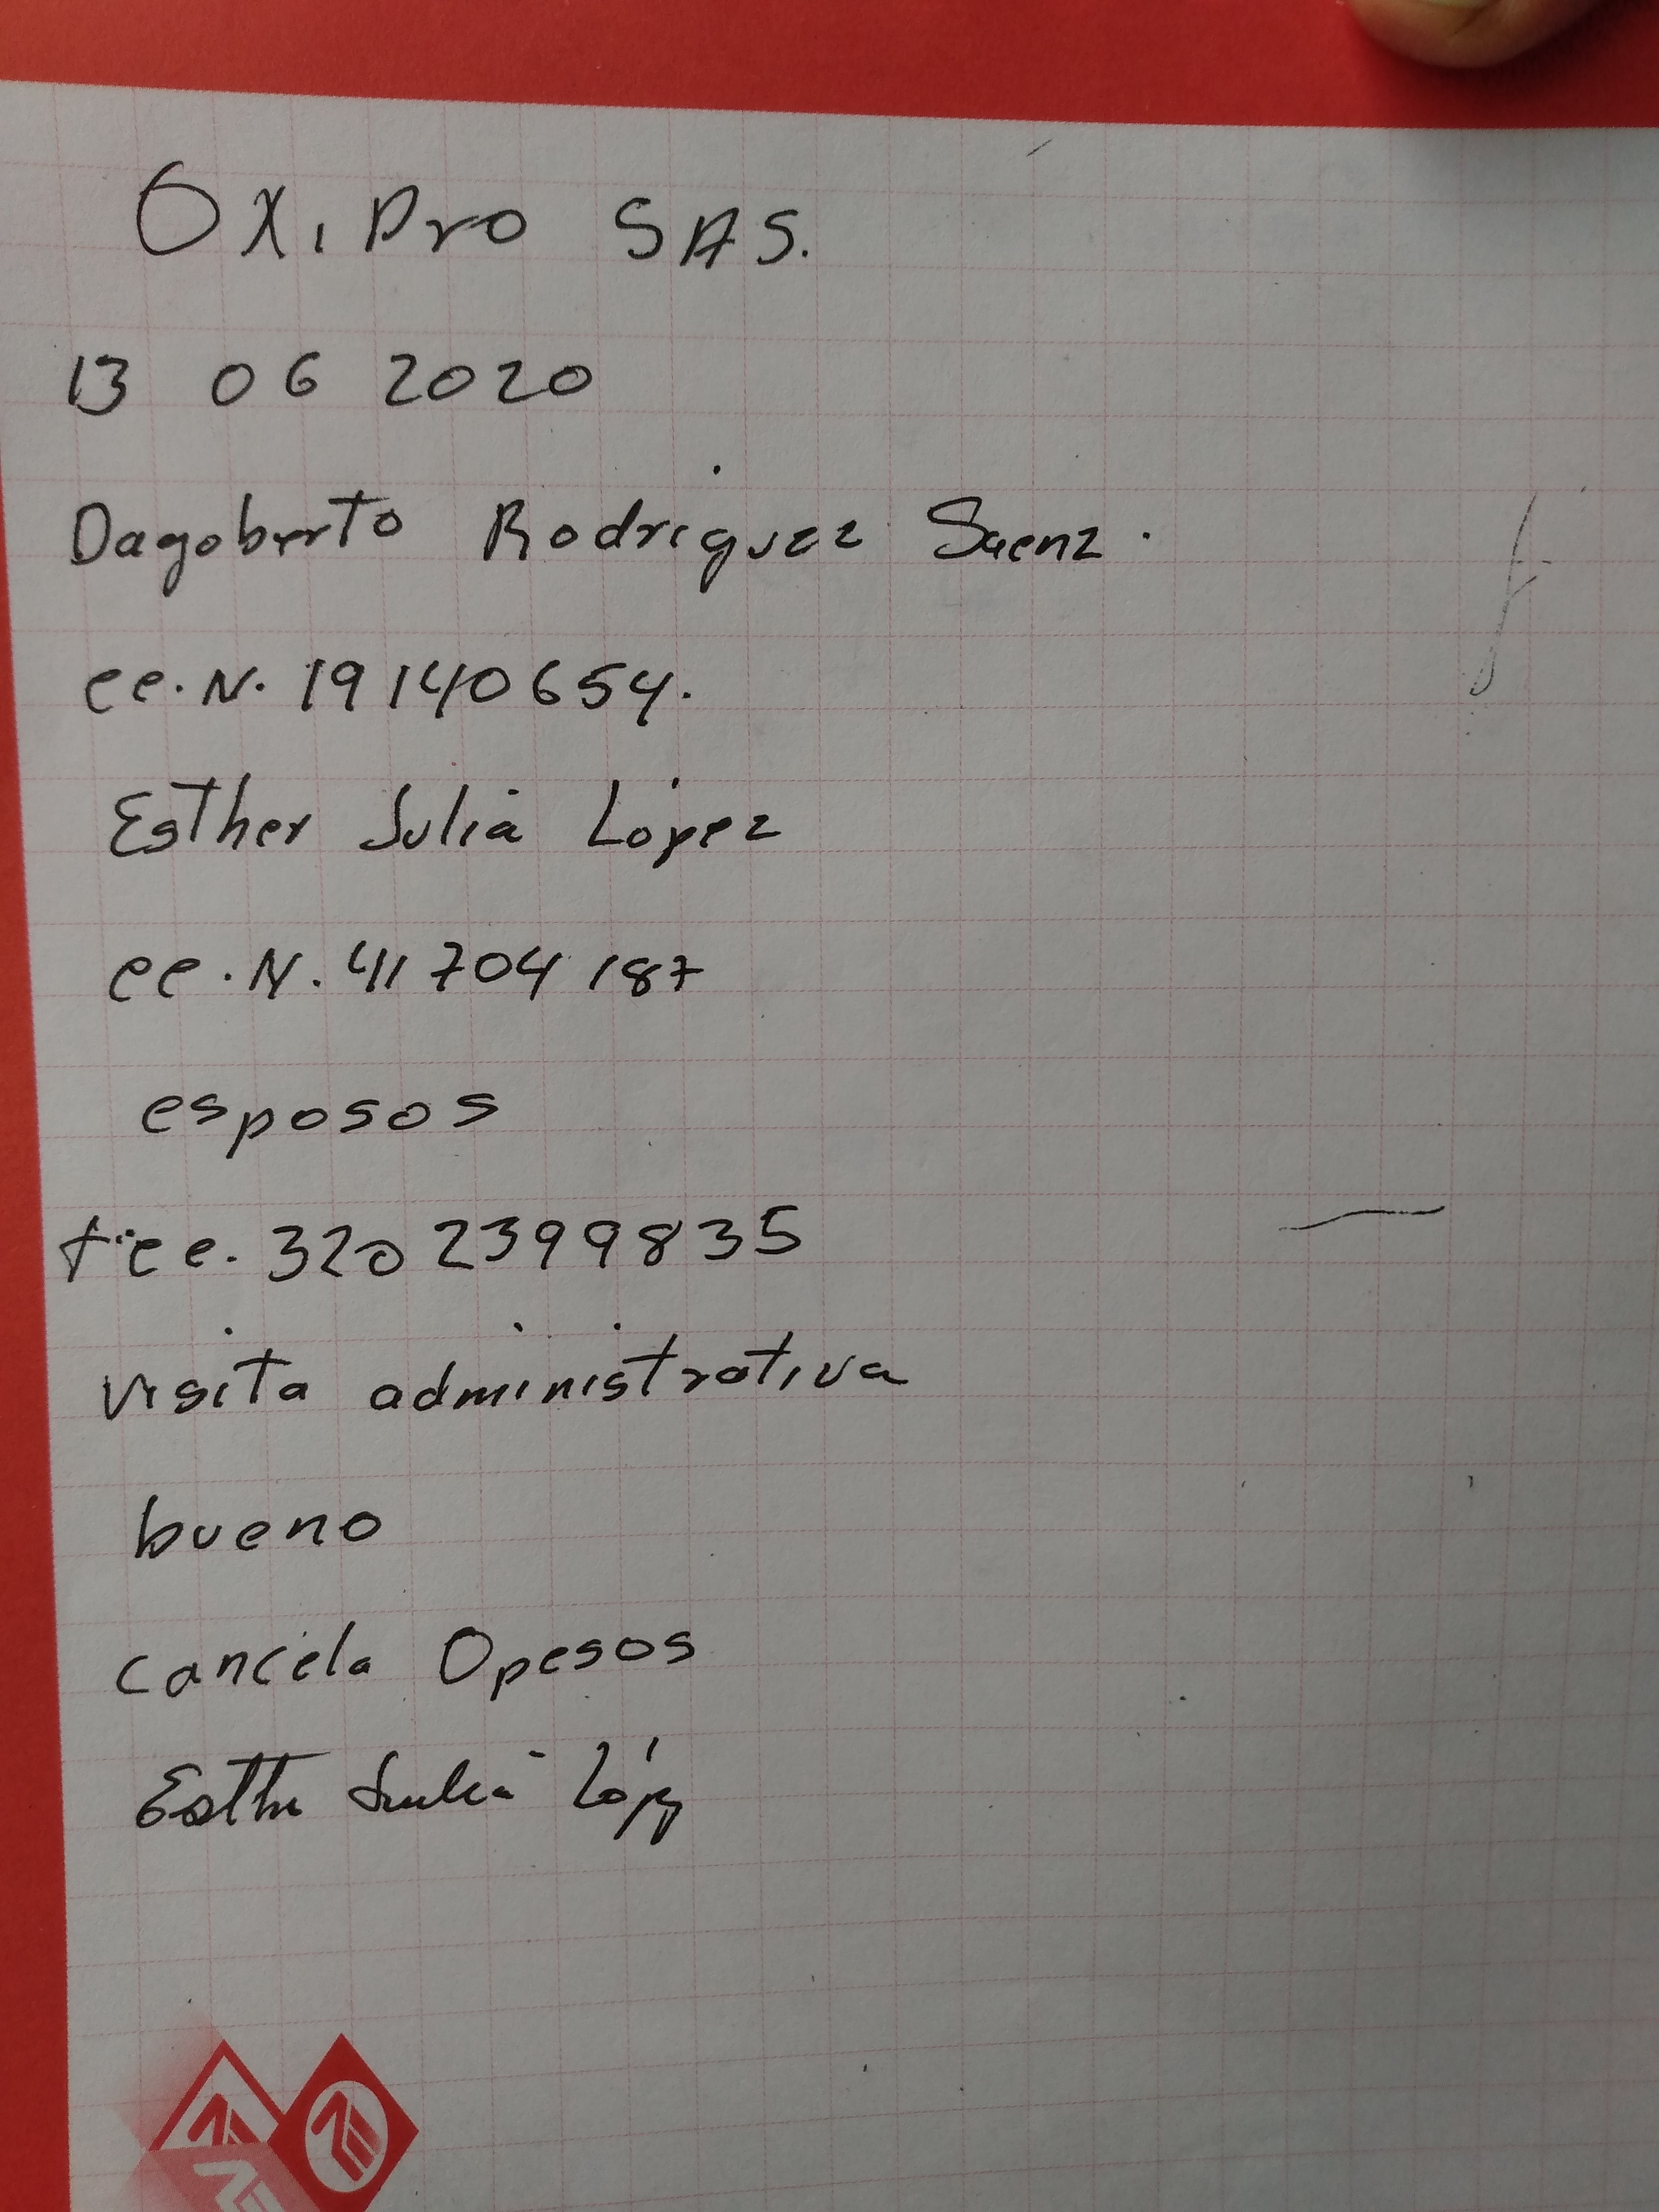 Oxipro SAS.
13 06 2020
Dagoberto Rodriguez Saenz.
cc. N. 19140654.
Esther Julia López
cc. N. 41704187
esposos
320 2399835
visita administrativa
bueno
cancela 0 pesos
Esther Julia López